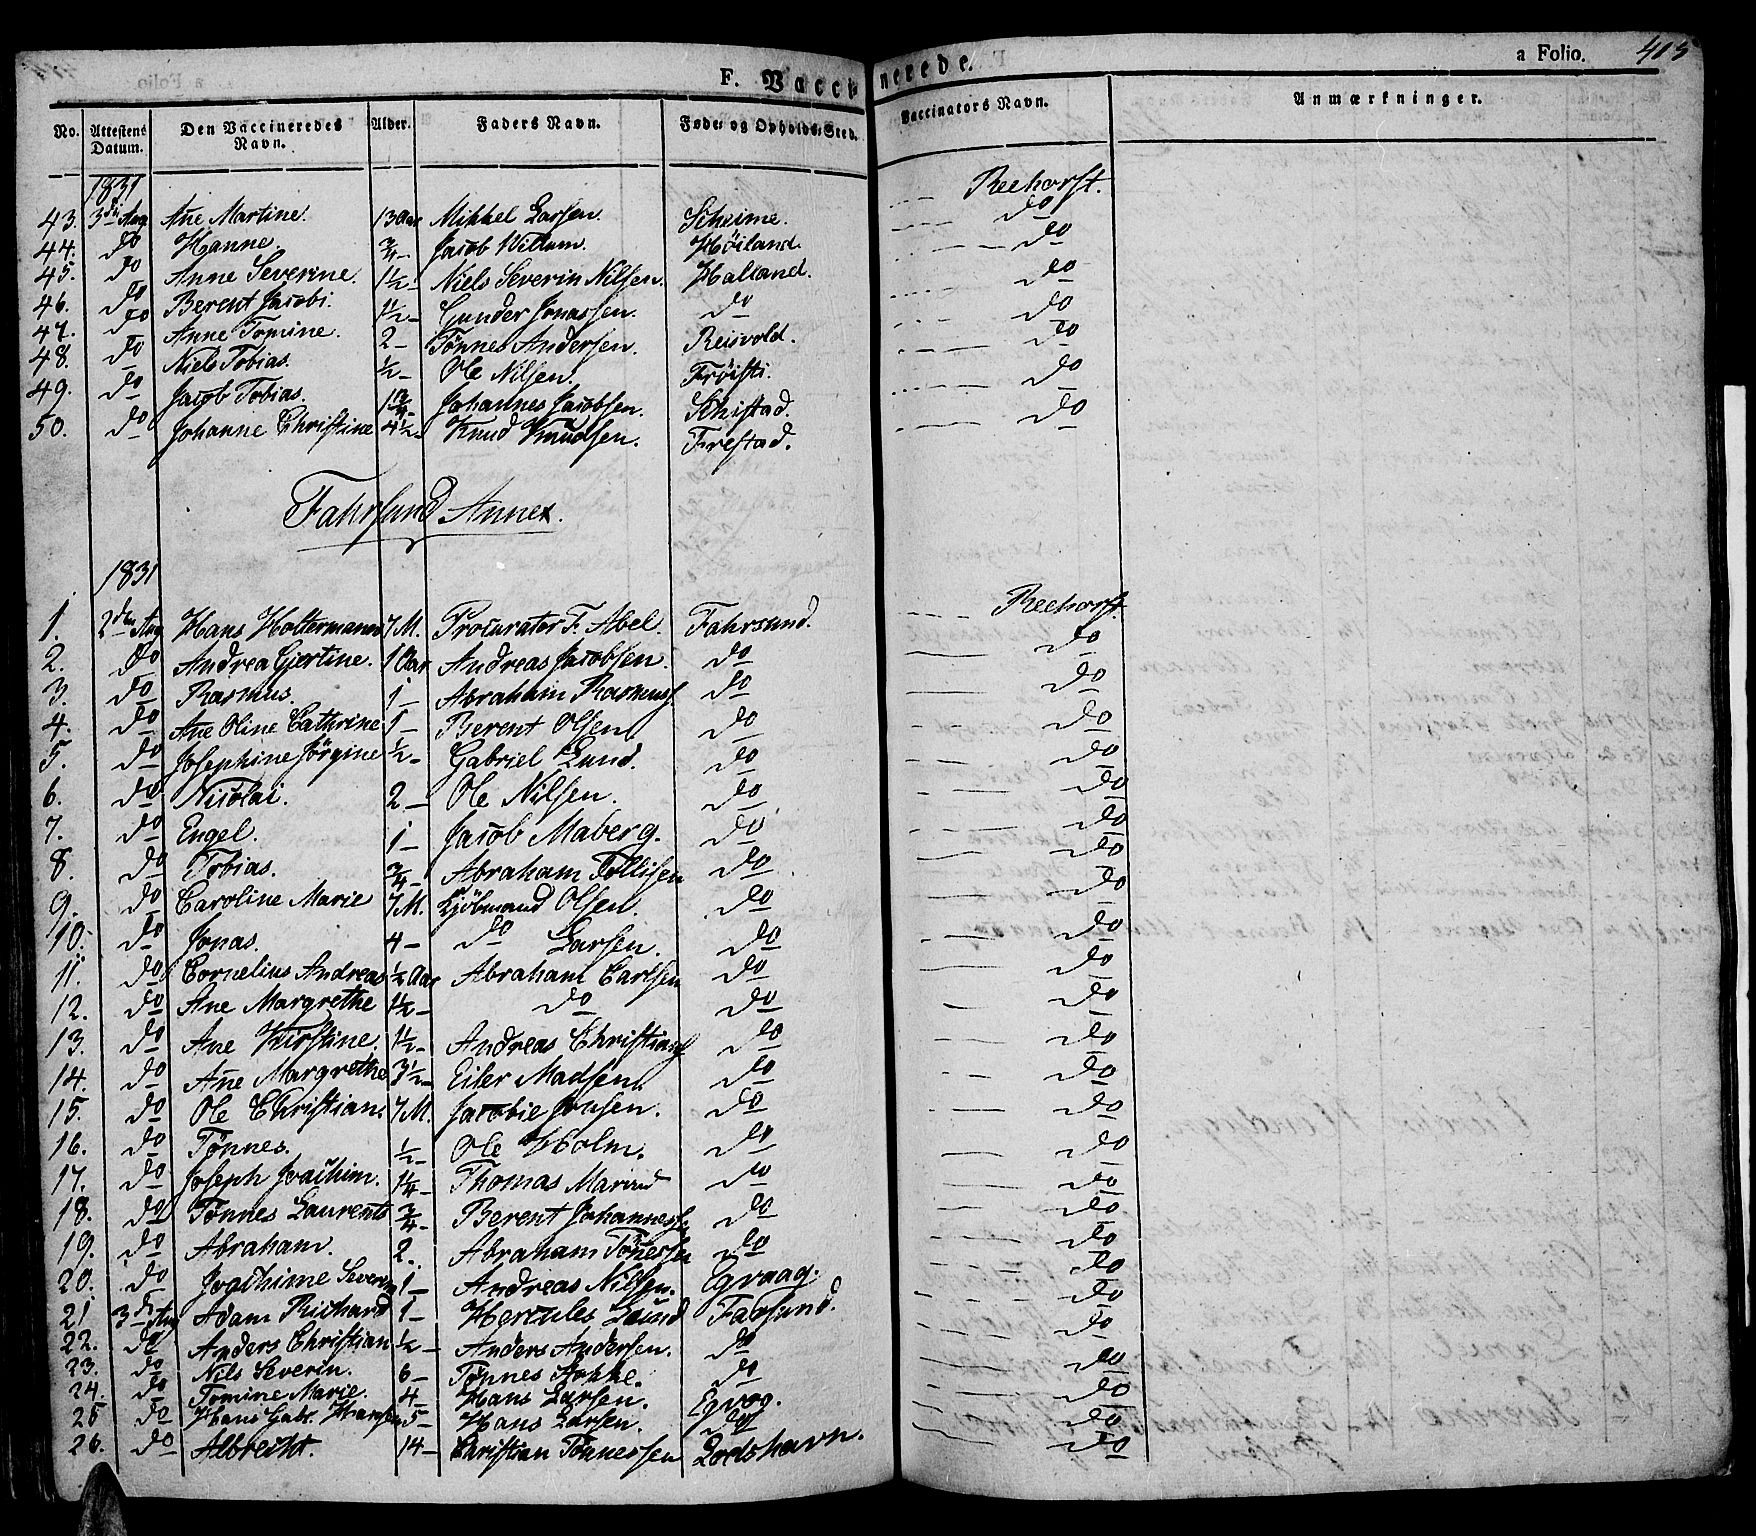 F. Vaccinerede. a Folio. 405
No. Attestens Datum. Den Vaccineredes Navn. Alder. Faders Navn. Føde- og Opholds-Sted. Vaccinators Navn. Anmærkninger.
1831
43. 3die Aug Ane Martine. 13 Aar Mikkel Larsen. Scheime. Reehorst.
44. do Hanne. 3/4 – Jacob Willum. Høiland. do
45. do Anne Severine. 1 1/2 – Niels Severin Nilsen. Halland. do
46. do Berent Jacobi. 1 1/2 – Gunder Jonassen. do do
47. do Anne Tomine. 2 – Tønnes Andersen. Reisvold. do
48. do Niels Tobias. 1/2 – Ole Nilsen. Frøisti. do
49. do Jacob Tobias. 1 3/4 – Johannes Jacobsen. Schistad. do
50. do Johanne Christine 4 1/2 – Knud Knudsen. Frestad. do
Fahrsund Annex.
1831
1. 2den Aug Hans Holtermann 7 M. Procurator F. Abel. Fahrsund. Reehorst.
2. do Andrea Gjertine. 1 Aar Andreas Jacobsen. do do
3. do Rasmus. 1 – Abraham Rasmuss. do do
4. do Ane Oline Cathrine 1 – Berent Olsen do do
5. do Josephine Jörgine 1/2 – Gabriel Lund. do do
6. do Nicolai. 2 – Ole Nilsen. do do
7. do Engel. 1 – Jacob Maberg. do do
8. do Tobias. 3/4 – Abraham Tollisen do do
9. do Caroline Marie 7 M. Kjöbmand Olsen. do do
10. do Jonas. 4 – do Larsen. do do
11. do Cornelius Andreas 1/2 Aar Abraham Carlsen do do
12. do Ane Margrethe 1 1/2 – do do do
13. do Ane Kirstine. 1 1/2 – Andreas Christians do do
14. do Ane Margrethe 3 1/2 – Eiler Madsen. do do
15. do Ole Christian. 7 M. Jacobie Jonsen. do do
16. do Tønnes. 1/2 – Ole Holm. do do
17. do Joseph Joachim. 1 1/4 – Thomas do do
18. do Tønnes Laurents 3/4 – Berent Johanness. do do
19. do Abraham. 2. Abraham Tönnessen do do
20. do Joachime Severin 1 – Andreas Nilsen. Egvaag. do
21 3die Aug Adam Richard 1 – Hercules Lund Farsund. do
22. do Anders Christian 1/2 – Anders Andersen. do do
23. do Nils Severin. 6 – Tønnes do do
24. do Tomine Marie. 4 – Hans Larsen. Egvog. do
25 do Hans Gabr. Hansen 5 – Hans Larsen. do do
26. do Albrecht. 14 – Christian Tönnessen Lodshavn. do